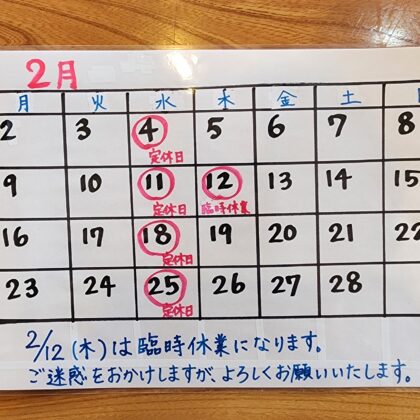 2月
月 火 水 木 金 土
2 3 4 5 6 7 8
定休日
9 10 11 12 13 14 15
定休日 臨時休業
16 17 18 19 20 21 22
定休日
23 24 25 26 27 28
定休日
2/12(木)は臨時休業になります。
ご迷惑をおかけしますが、よろしくお願いいたします。